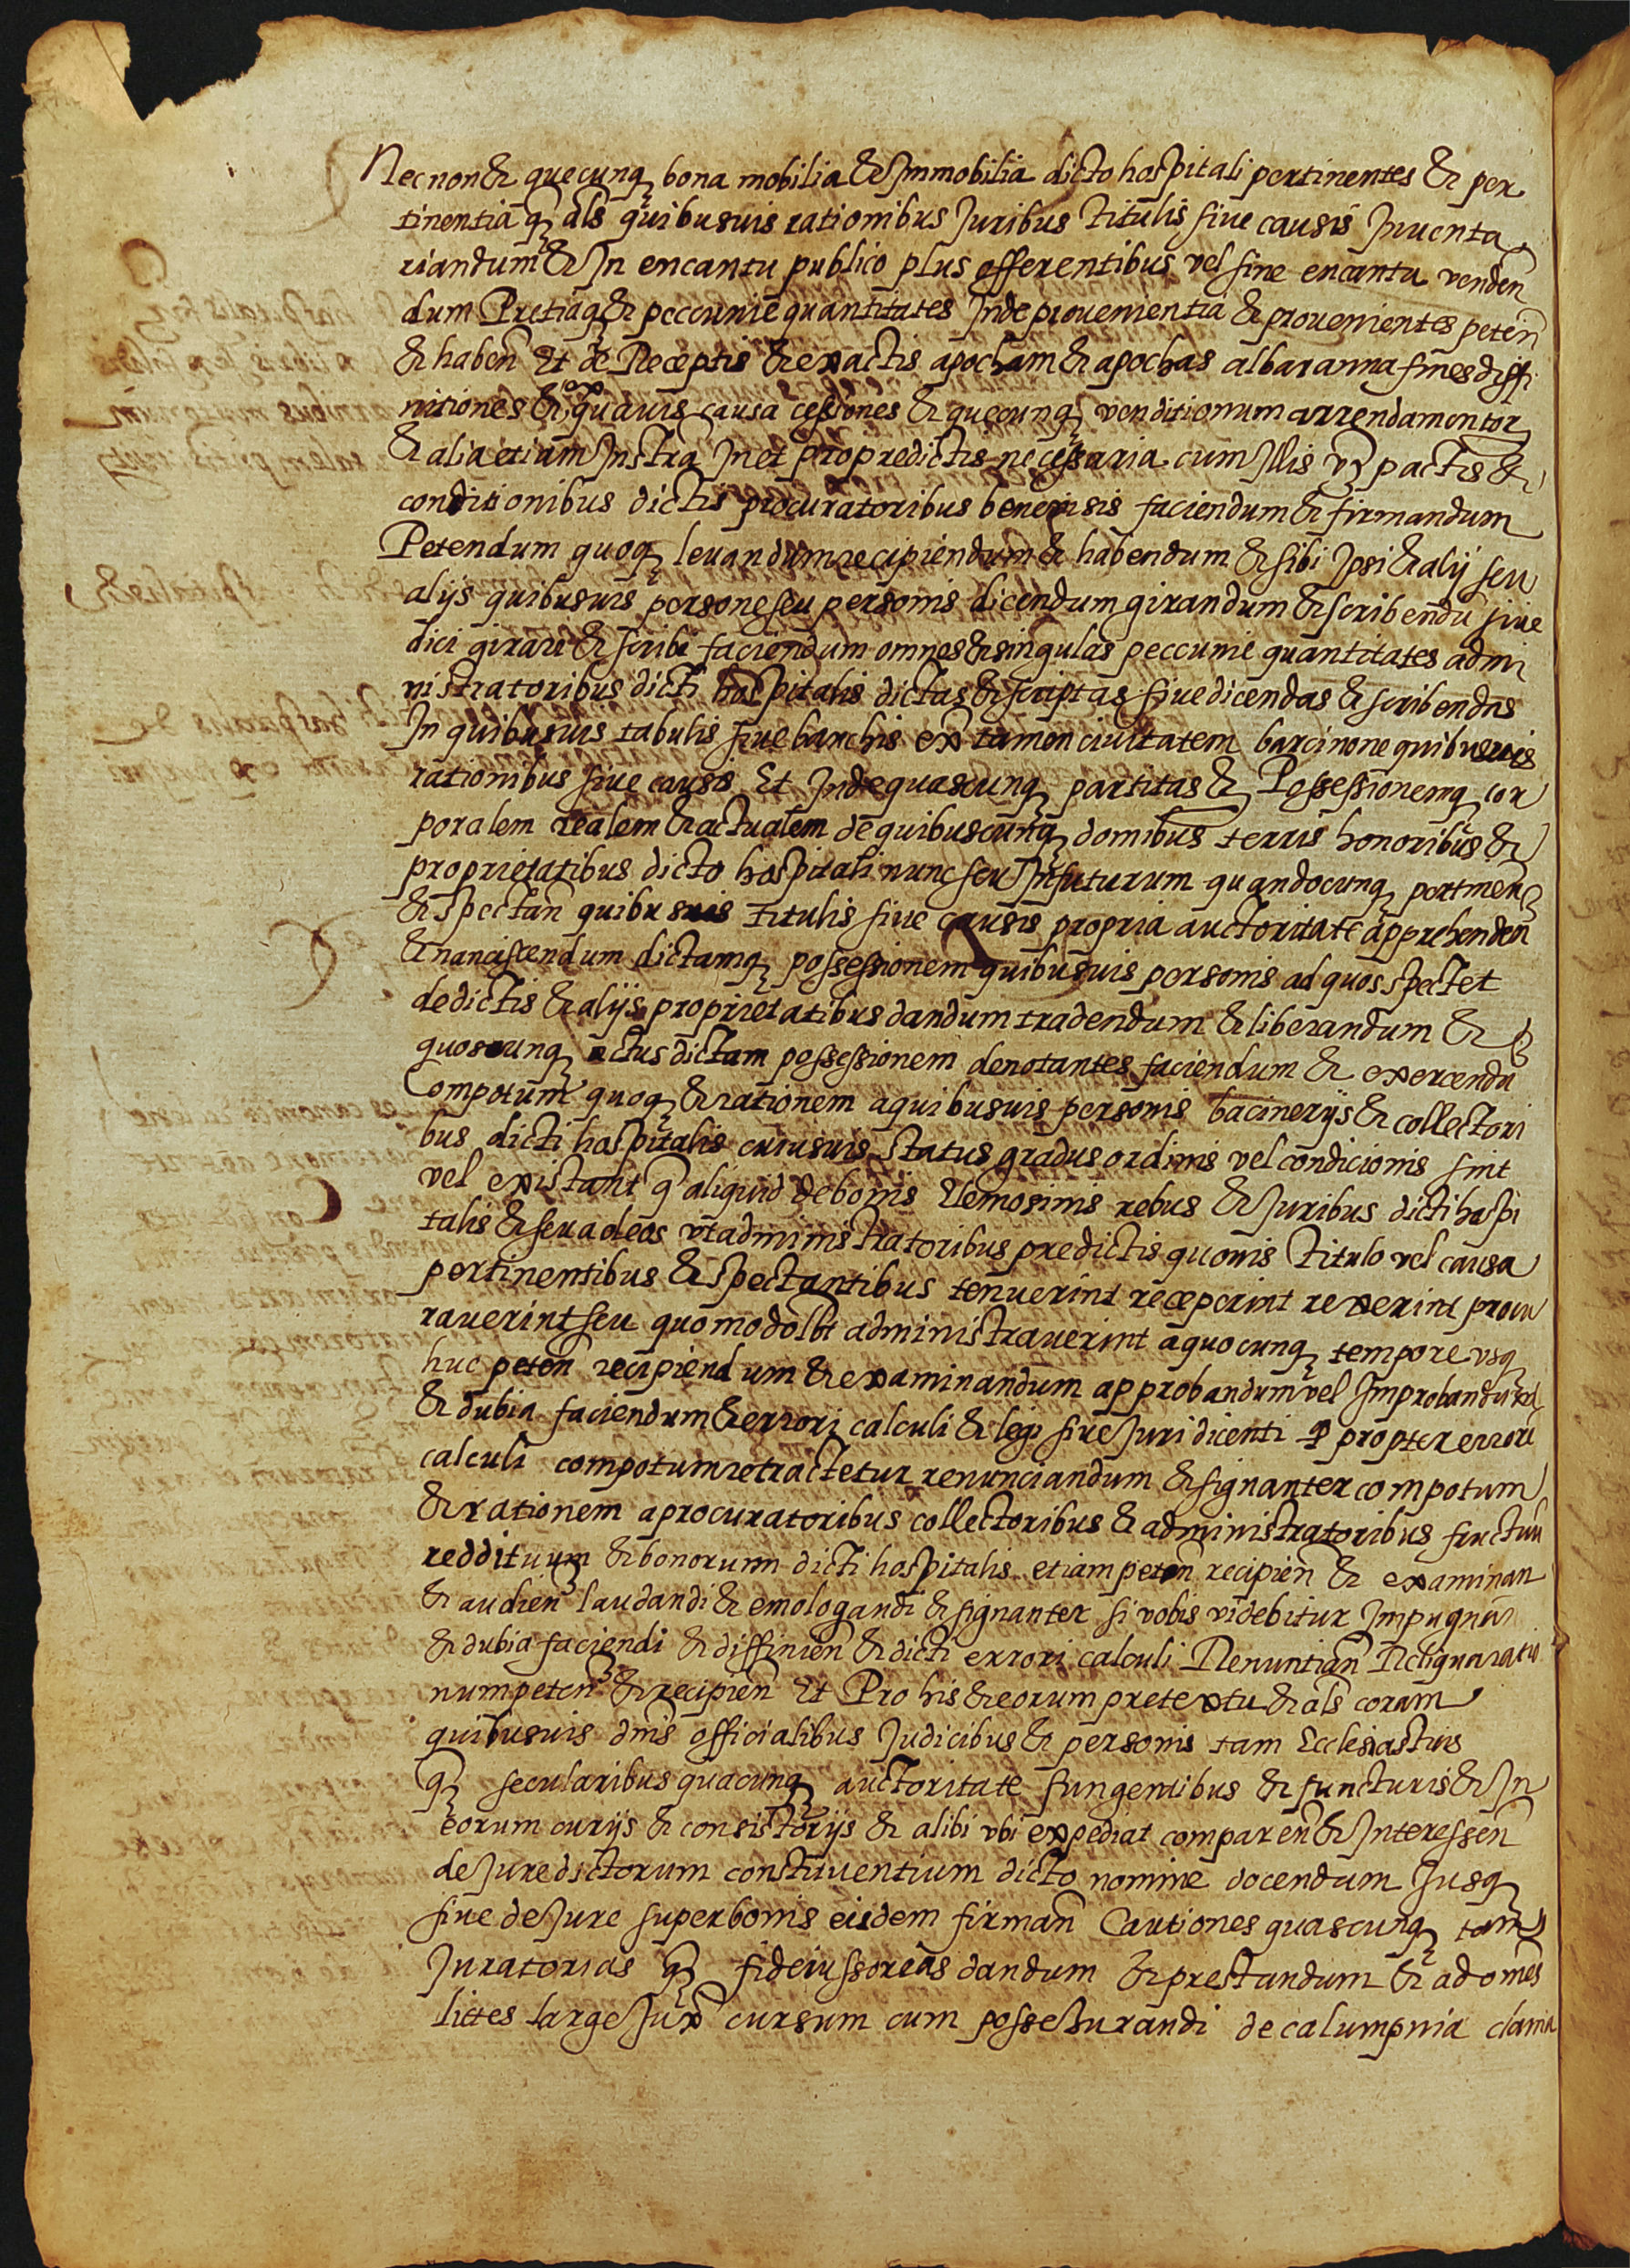 Necnon & quecunq bona mobilia & Immobilia dicto hospitali pertinentes & per
tinentia q als quibusuis rationibus Juribus titulis siue causis Inuenta
riandum & In encantu publico plus offerentibus vel sine encantu venden
dum Pretiaq & peccunie quantitates Inde prouenientia & prouenientes peten
& haben Et de Receptis & exactis apocham & apochas albaranna fines diffi
nitiones & ex quauis causa cessiones & quecunq venditionum arrendamentor
& alia etiam Instra In et pro predictis necessaria cum Illis vz pactis &
conditionibus dictis procuratoribus benevisis faciendum & firmandum
Petendum quoq leuandum recipiendum & habendum & sibi Ipsi & alij seu
alijs quibusuis persone seu personis dicendum girandum & scribendu siue
dici girari & scribi faciendum omnes & singulas peccunie quantitates admi
nistratoribus dicti hospitalis dictas & scriptas siue dicendas & scribendas
In quibusuis tabulis siue banchis ex tamen ciuitatem barcinone quibusuis
rationibus siue causis Et Inde quascunq partitas & Possessionemq cor
poralem realem & actualem de quibuscunq domibus terris honoribus &
proprietatibus dicto hospitali nunc seu In futurum quandocunq pertinen
& spectan quibusuis titulis siue causis propria auctoritate apprehenden
& nanciscendum dictamq possessionem quibusuis personis ad quos spectet
de dictis & alijs proprietatibus dandum tradendum & liberandum &
quoscunq actus dictam possessionem denotantes faciendum & exercendu
Compotum quoq & rationem a quibusuis personis bacinerijs & collectori
bus dicti hospitalis cuiusuis status gradus ordinis vel condicionis sint
vel existant q aliquid de bonis Elemosinis rebus & Juribus dicti hospi
talis & seu ad eos vt administratoribus predictis quouis titulo vel causa
pertinentibus & spectantibus tenuerint receperint rexerint procu
rauerint seu quomodolbt administrauerint a quocunq tempore usq
huc peten recipiendum & examinandum approbandum vel Improbandu
& dubia faciendum & errori calculi & legi siue Juri dicenti q propter errore
calculi compotum retractetur renunciandum & signanter compotum
& rationem a procuratoribus collectoribus & administratoribus fructuu
reddituum & bonorum dicti hospitalis etiam peten recipien & examinan
& audien laudandi & emologandi & signanter si vobis videbitur Impugnan
& dubia faciendi & diffinien & dicti errori calculi Renuntian Reliquaratio
num peten & recipien Et Pro his & eorum pretextu & als coram
quibusuis dnis officialibus Judicibus & personis tam Ecclesiasticis
q secularibus quacunq auctoritate fungentibus & functuris & In
eorum curijs & consistorijs & alibi vbi expediat comparen & Interessen
de Jure dictorum constituentium dicto nomine docendum Jusq
siue de Jure super bonis eisdem firman Cautiones quascunq tam
Juratorias q fideiussoreas dandum & prestandum & ad omes
lictes large Jux cursum cum posse Jurandi de calumpnia clama